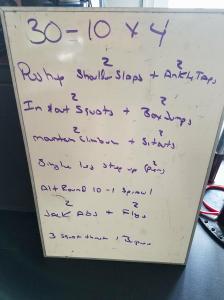 30-10 x 4
2 2
Push up Shoulder Slaps + Ankle Taps
2 2
In & out Squats + Box Jumps
2 2
mountain Climbers + Sit outs
2
Single leg step up
Alt Round 10-1 Sprawl
2 2
Jack Abs +
3 Squat 1